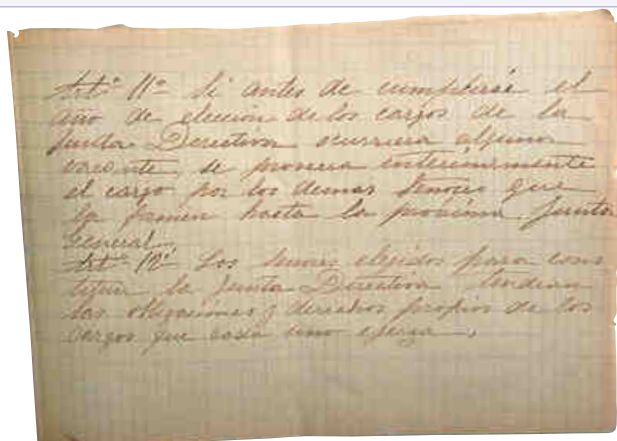 Artº 11º Si antes de cumplirse el
año de eleccion de los cargos de la
Junta Directiva ocurriera alguna
vacante, se proveera interinamente
el cargo por los demas Señores que
la formen hasta la proxima Junta
General.
Artº 12º Los Señores elejidos para cons
tituir la Junta Directiva tendran
las obligaciones y derechos propios de los
cargos que cada uno ejerza.